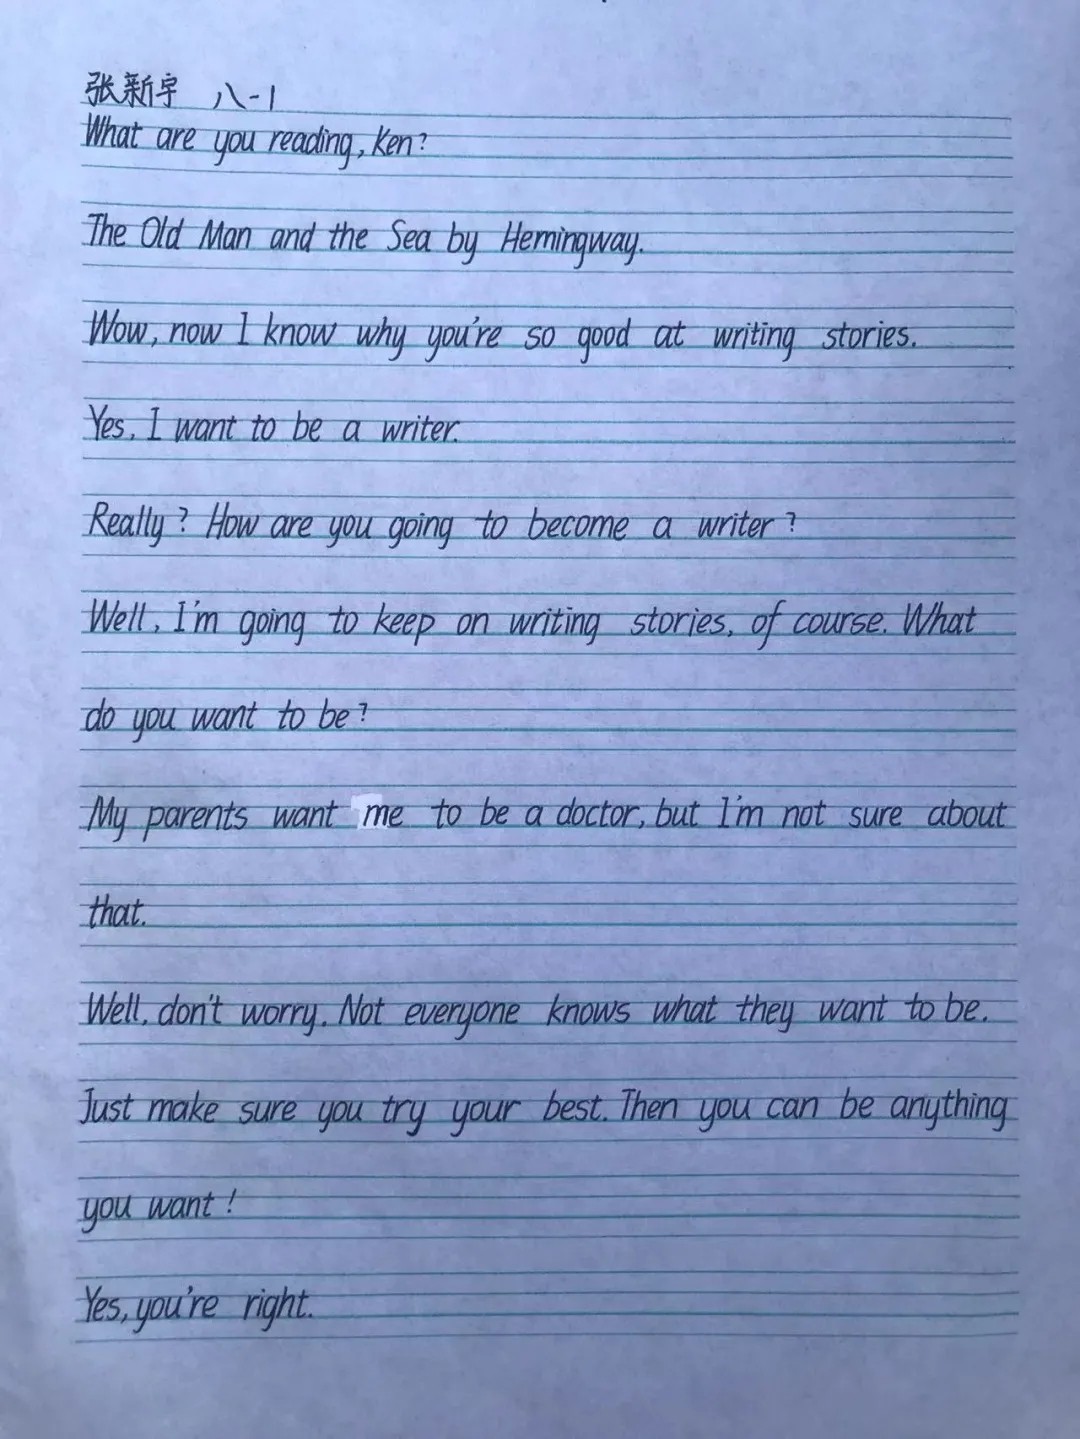 张新宇 八-1
What are you reading, Ken?
The Old Man and the Sea by Hemingway.
Wow, now I know why you're so good at writing stories.
Yes, I want to be a writer.
Really? How are you going to become a writer?
Well, I'm going to keep on writing stories, of course. What
do you want to be?
My parents want me to be a doctor, but I'm not sure about
that.
Well, don't worry. Not everyone knows what they want to be.
Just make sure you try your best. Then you can be anything
you want!
Yes, you're right.